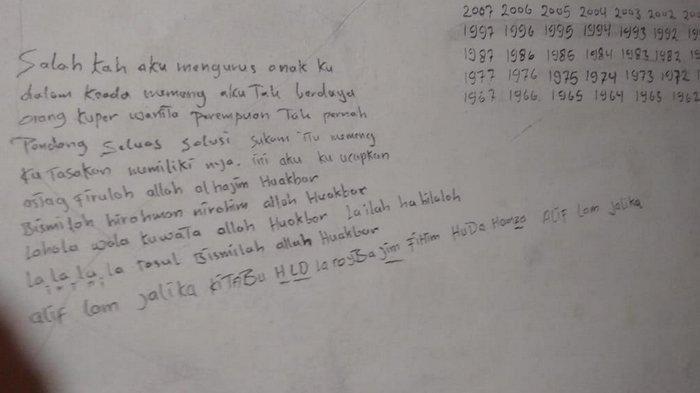 2007 2006 2005 2004 2003 2002
1997 1996 1995 1994 1993 1992
1987 1986 1985 1984 1983 1982
1977 1976 1975 1974 1973 1972
1967 1966 1965 1964 1963 1962
Salah kah aku mengurus anak ku
dalam keada memang aku Tak berdaya
orang kuper wanita perempuan Tak pernah
Pandang Seluas Solusi Sukami itu memang
Ku Tasakan memiliki nya. ini aku ku ucapkan
astag firuloh alloh al hajim Huakbar
Bismiloh hirohman nirohim alloh Huakbar
Lahola wala kuwata alloh Huakbar lailah ha hilaloh
la la la la rasul Bismilah allah Huakbar
alif lam jalika KiTABu HLD laroyBa jim fihim HuDa Hamza Alif lam jalika